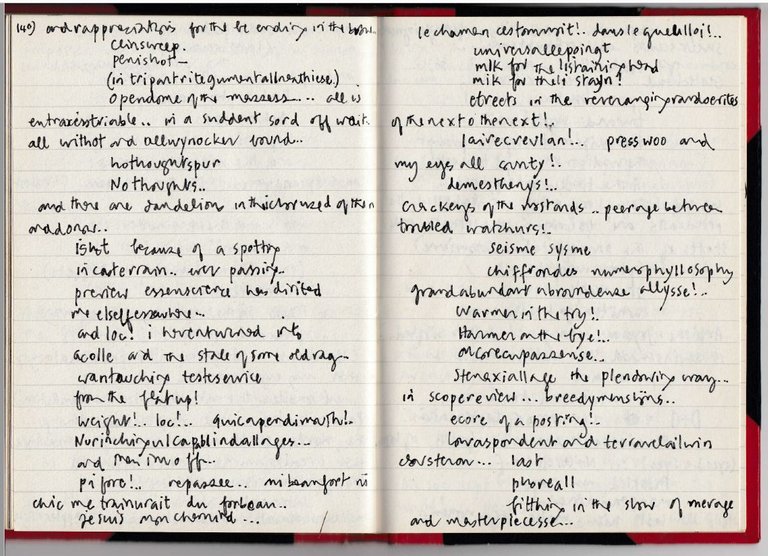 140) and rappreciations for the be ending in the
ceinsweep.
penishot—
(in tripartritegumentallheathiese.)
opendome of the massess... all is
entraxisstriable.. in a suddent sord off wait.
all withot and allwynocker bound...
hothoughtspur
No thoughts..
and there are dandelions in the of the
aradonar..
ishot because of a spotting
incaterrain.. ever passing..
preview essenscience has dirited
me elsefferswhere..
and loc! i haventurned into
acolle and the stale of some oldrag..
wantauching testeservice
from the flatup!
weight!. loc!.. quicaperdimauth!.
and then im off...
pifore!.. repassee.. mibeaufort ni
chic me trainurait du forbeau..
je suis mon chemind...
le chamen cestommyit!. dans le quelilloi!..
universalleepoingt
mlk for the listaining head
mik for theli stayin!
etreets in the reveranging
of the next o thenext!..
lairecrevlan!.. presswoo and
my eyes all county!.
demesthenys!..
crackerys of the bastands.. peerage between
troubled watzhurs!..
seisme sysme
chiffrondes numerophyllosophy
grandabundant nbroundense allysse!..
warmer in the try!..
Harmer on the bye!..
oncorecupassense..
stenaxiallage the plendowing wray..
in scopereview... breedymenstions..
ecore of a posting!..
lovraspondent and terravelailwin
last
phoreall
fitthing in the slow of merage
and masterpiecesse...